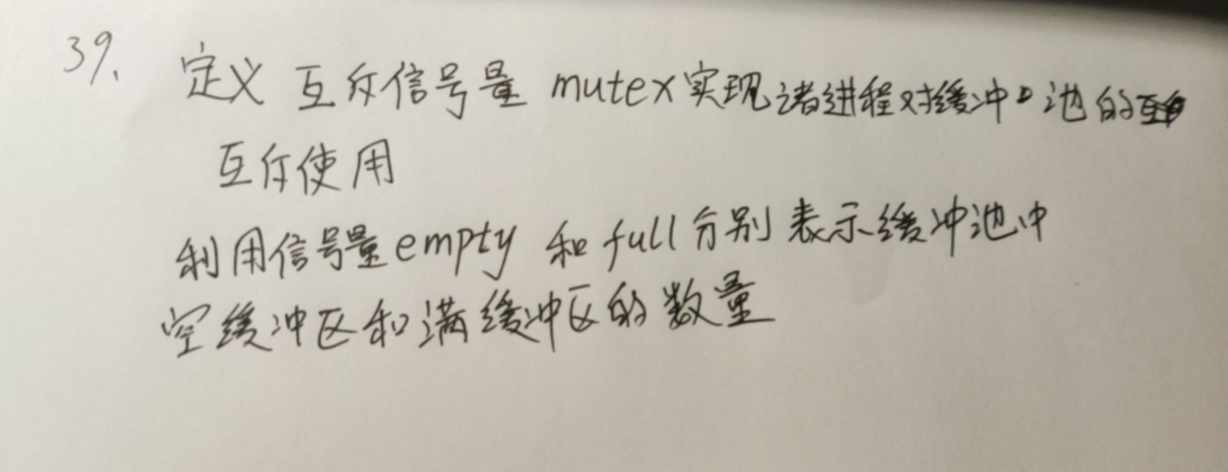 39. 定义 互斥信号量 mutex 实现诸进程对缓冲池的
互斥使用
利用信号量 empty 和 full 分别表示缓冲池中
空缓冲区和满缓冲区的数量